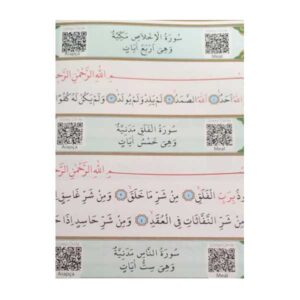 سُورَةُ الْاِخْلَاصِ مَكِّيَّةٌ
وَهِيَ اَرْبَعُ اٰيَاتٍ
Arapça
Meal
ـمِ اللهِ الرَّحْمٰنِ الرَّحـ
اللهُ اَحَدٌ ﴿١﴾ اَللهُ الصَّمَدُ ﴿٢﴾ لَمْ يَلِدْ وَلَمْ يُولَدْ ﴿٣﴾ وَلَمْ يَكُنْ لَهُ كُفُوًا
سُورَةُ الْفَلَقِ مَدَنِيَّةٌ
وَهِيَ خَمْسُ اٰيَاتٍ
Arapça
Meal
ـمِ اللهِ الرَّحْمٰنِ الرَّحـ
ـوذُ بِرَبِّ الْفَلَقِ ﴿١﴾ مِنْ شَرِّ مَا خَلَقَ ﴿٢﴾ وَمِنْ شَرِّ غَاسِقٍ
وَمِنْ شَرِّ النَّفَّاثَاتِ فِي الْعُقَدِ ﴿٤﴾ وَمِنْ شَرِّ حَاسِدٍ اِذَا
سُورَةُ النَّاسِ مَدَنِيَّةٌ
وَهِيَ سِتُّ اٰيَاتٍ
Arapça
Meal